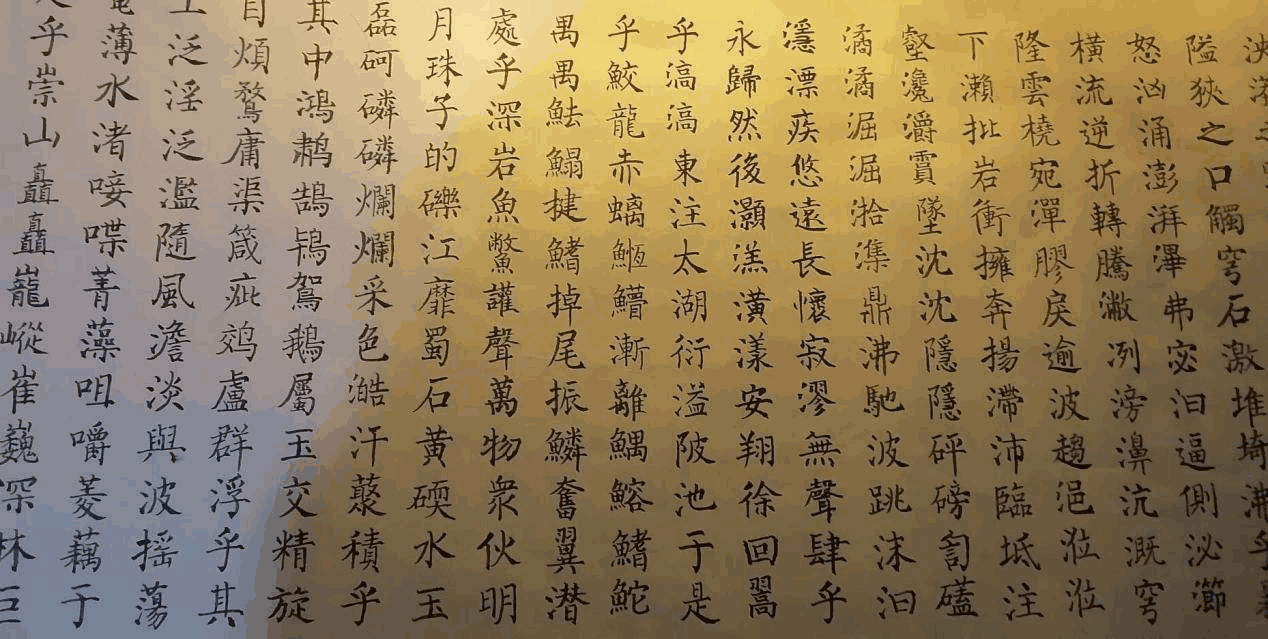 泱漭之
隘狹之口觸穹石激堆埼沸乎暴
怒洶涌澎湃滭弗宓汩逼側泌瀄
橫流逆折轉騰潎洌滂濞沆溉穹
隆雲橈宛潬膠戾逾波趨浥涖涖
下瀨批岩衝擁奔揚滯沛臨坻注
壑瀺灂霣墜沈沈隱隱砰磅訇礚
潏潏淈淈湁潗鼎沸馳波跳沫汩
濦漂疾悠遠長懷寂漻無聲肆乎
永歸然後灝溔潢漾安翔徐回翯
乎滈滈東注太湖衍溢陂池于是
乎鮫龍赤螭䱍䲛漸離鰅鰫鰭鮀
禺禺魼鰨揵鰭掉尾振鱗奮翼潛
處乎深岩魚鱉讙聲萬物衆伙明
月珠子的礫江靡蜀石黃碝水玉
磊砢磷磷爛爛采色澔汗藂積乎
其中鴻鷫鵠鴇鴐鵝屬玉交精旋
目煩鶩庸渠箴疵鵁盧群浮乎其
上泛淫泛濫隨風澹淡與波搖蕩
奄薄水渚唼喋菁藻咀嚼菱藕于
乎崇山矗矗巃嵷崔巍深林巨